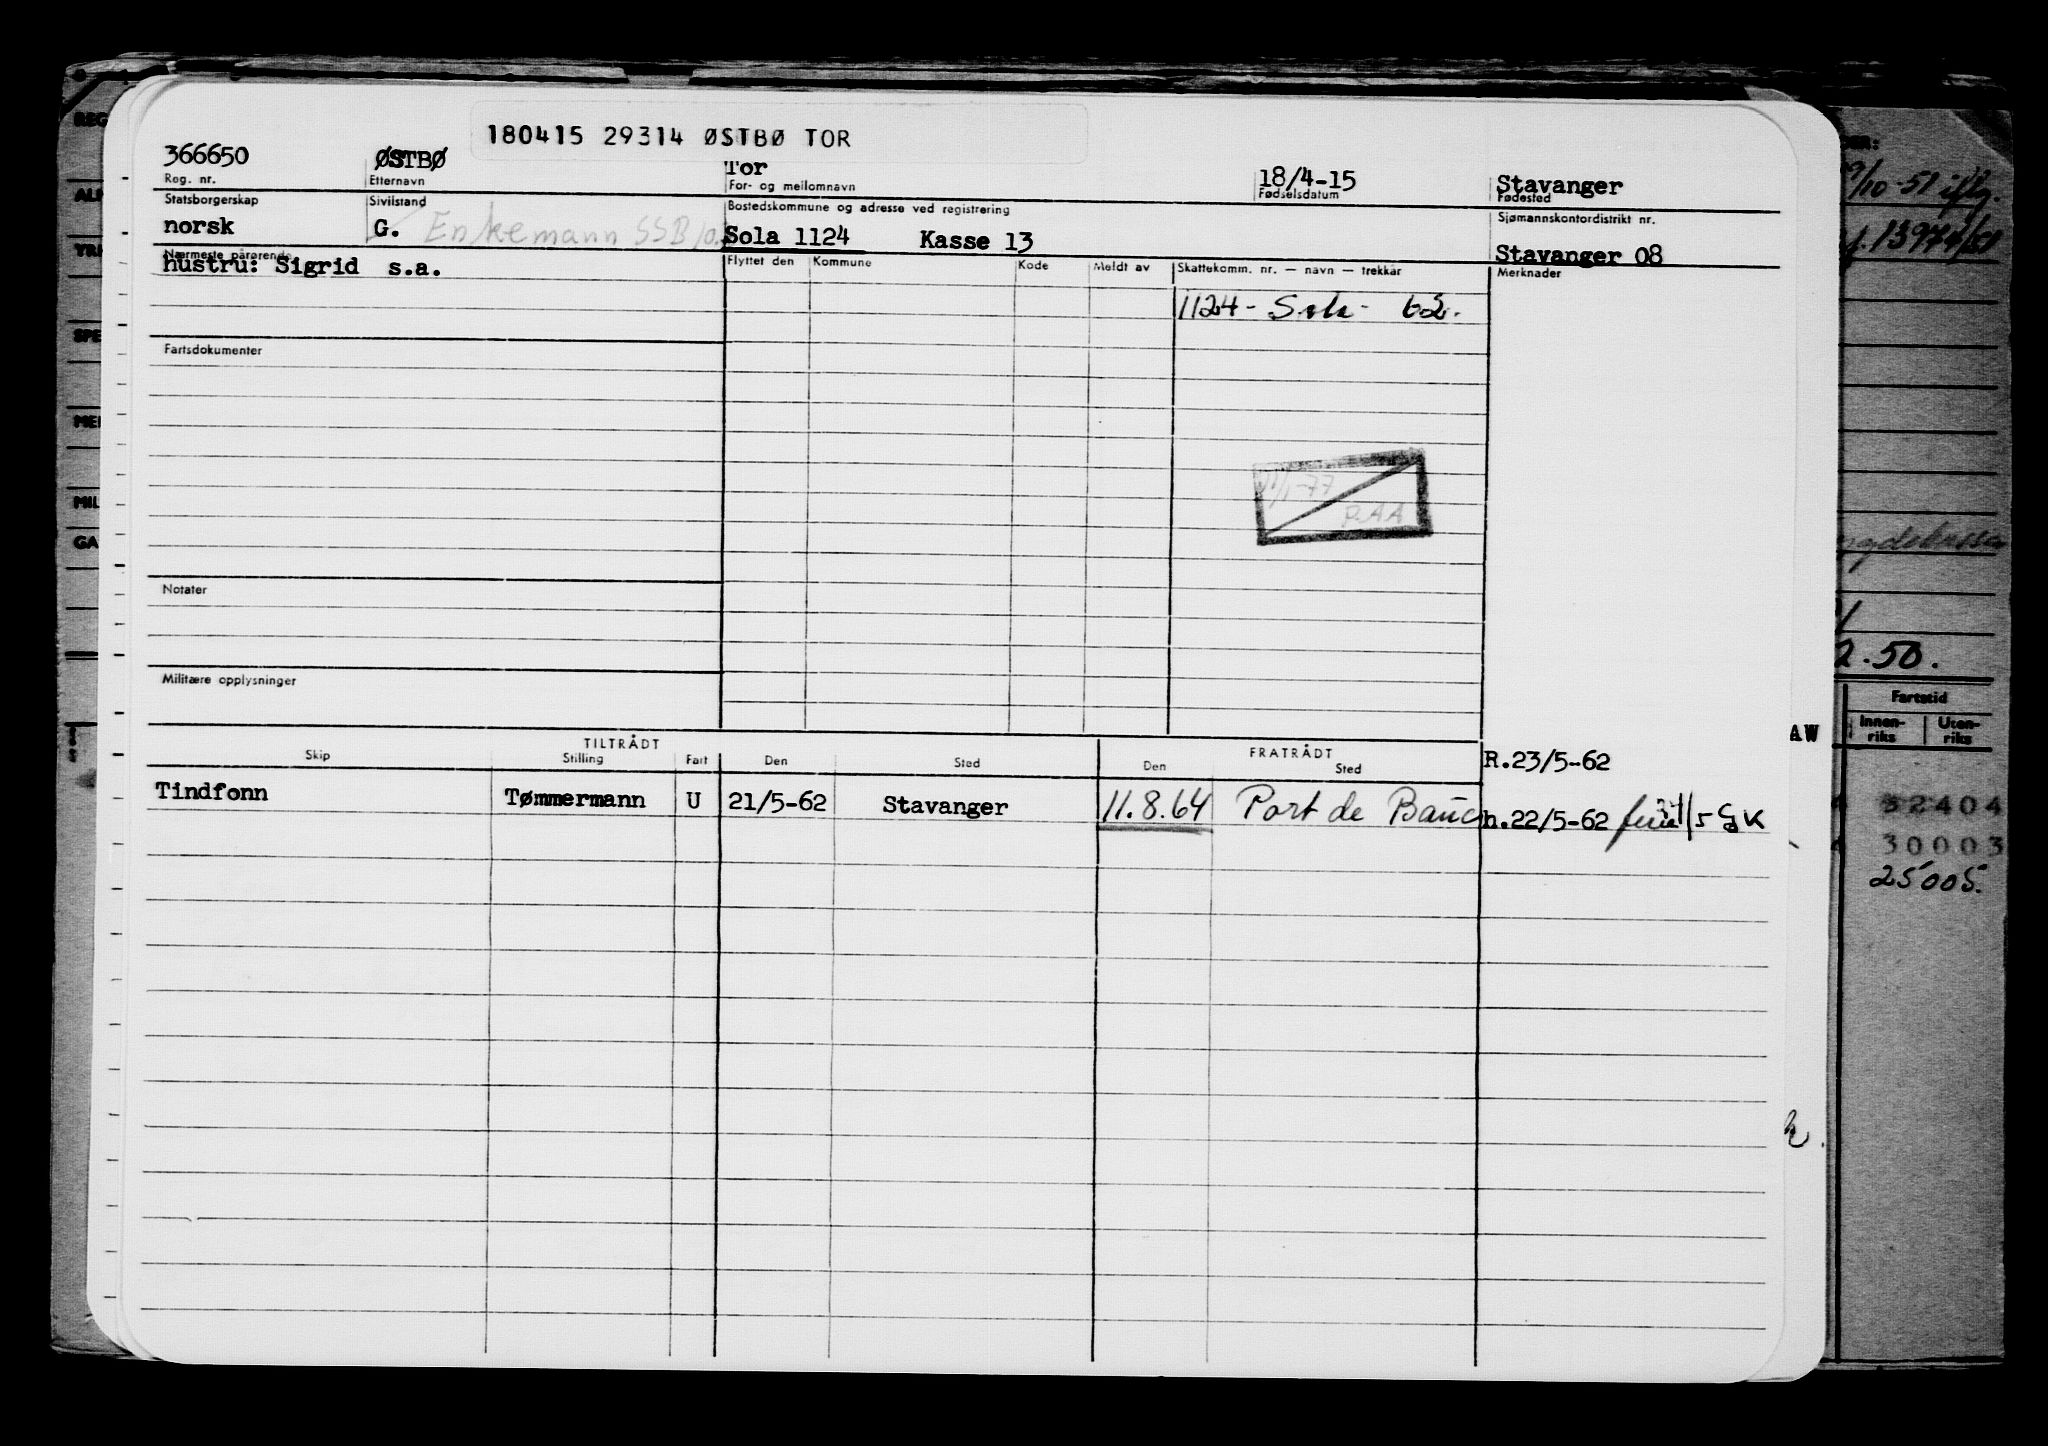 180415 29314 ØSTBØ TOR
366650 ØSTBØ Tor 18/4-15 Stavanger
Reg. nr. Etternavn For- og mellomnavn Fødselsdatum Fødested
Statsborgerskap Sivilstand Bostedskommune og adresse ved registrering Sjømannskontordistrikt nr.
norsk G. Enkemann SSB Sola 1124 Kasse 13 Stavanger 08
Nærmeste pårørende Flyttet den Kommune Kode Meldt av Skattekomm. nr. — navn — trekkår Merknader
hustru: Sigrid s.a.
1124 - Sola - 62.
Fartsdokumenter
1/1-77
P.AA
Notater
Militære opplysninger
TILTRÅDT FRATRÅDT
Skip Stilling Fart Den Sted Den Sted
R.23/5-62
Tindfonn Tømmermann U 21/5-62 Stavanger 11.8.64 Port de Bauc h.22/5-62
AW
-51
13974/51
2.50.
Fartstid
Innen-riks Uten-riks
32404
30003
25005.
REG
SPE
MIL
GA